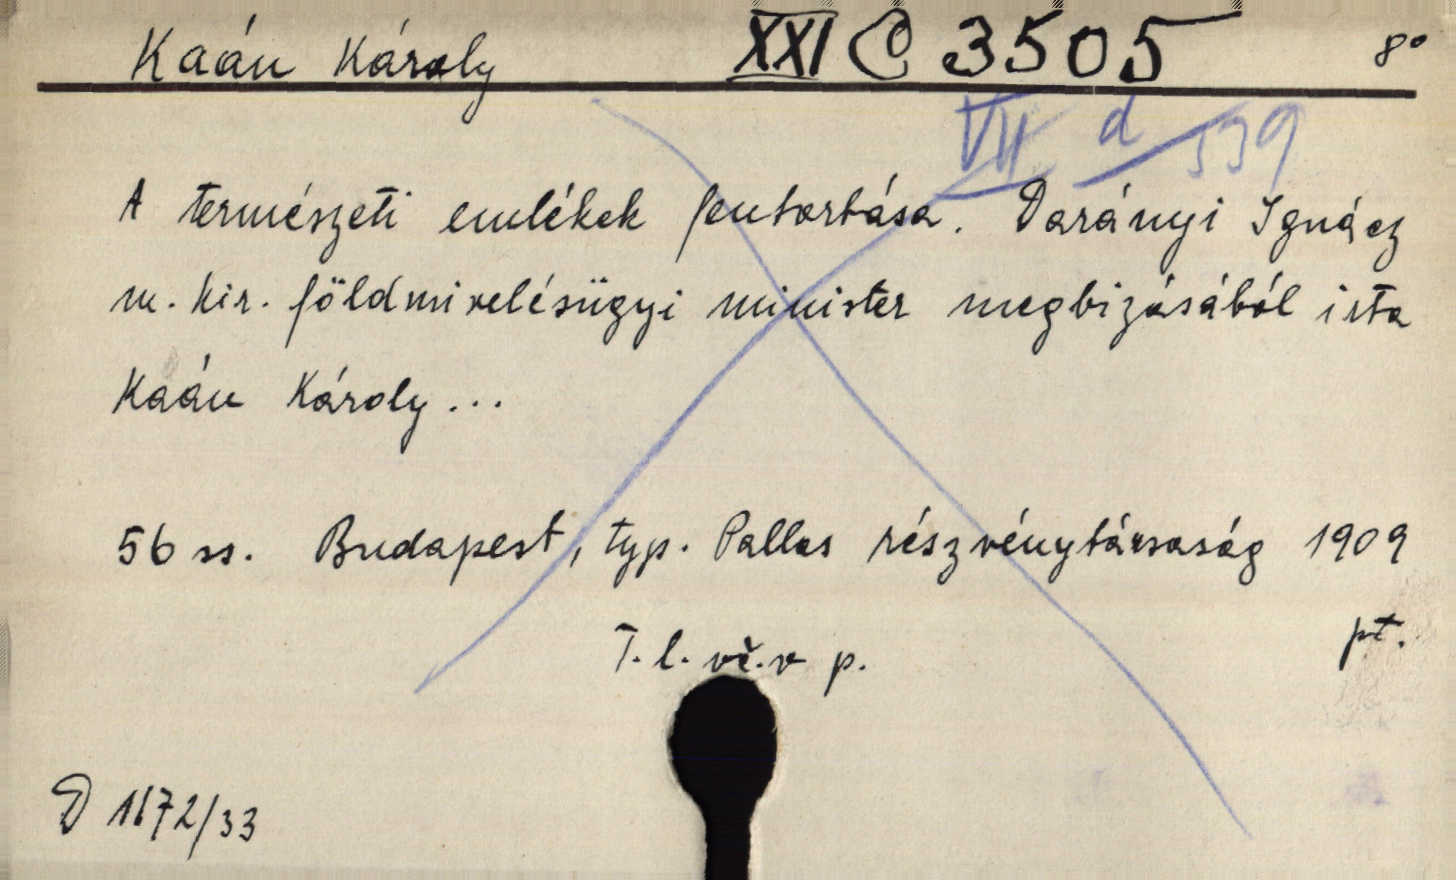 Kaán Károly XXI C 3505 8°
VII d 539
A természeti emlékek fentartása. Darányi Ignácz
m. kir. földmivelésügyi minister megbizásából irta
Kaán Károly...
56 ss. Budapest, typ. Pallas részvénytársaság 1909
T. l. vč. v p. pt.
D 1672/33